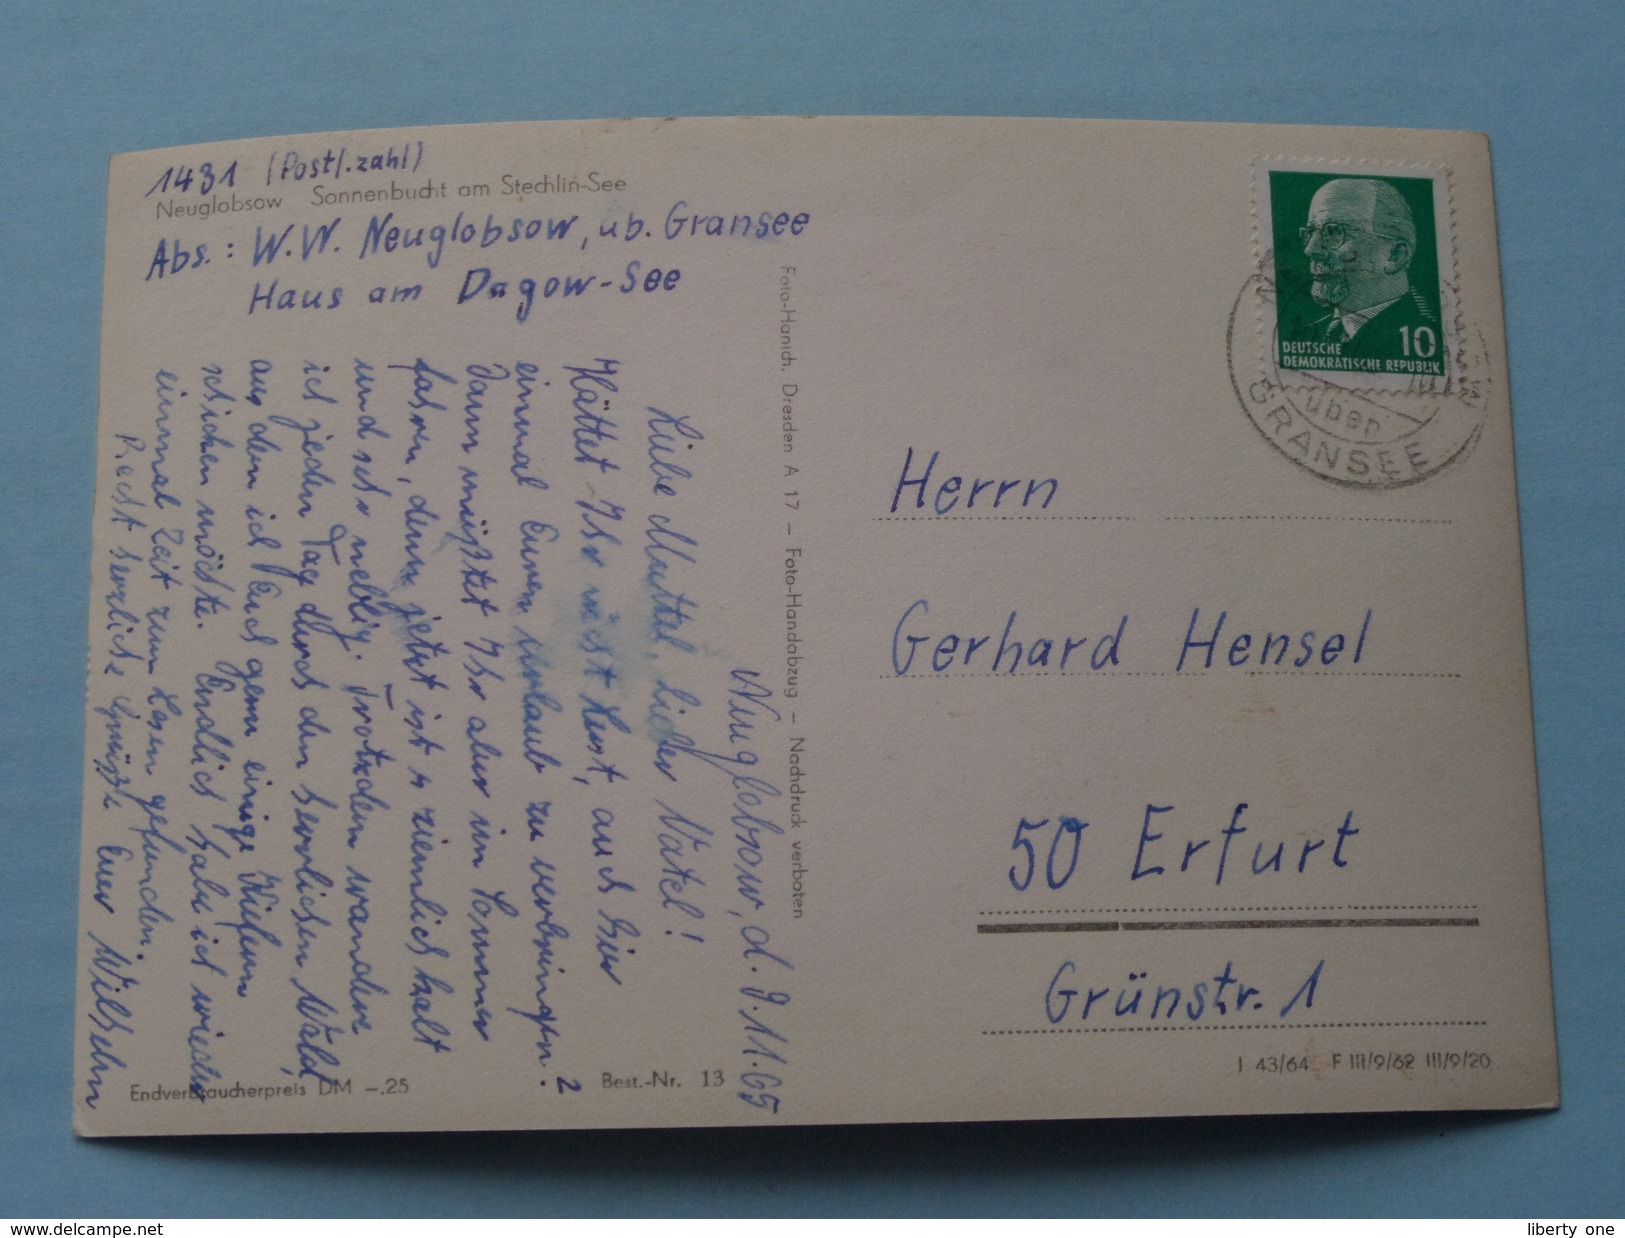 1431 (Postl.zahl)
Neuglobsow Sonnenbucht am Stechlin-See
Abs.: W.W. Neuglobsow, üb. Gransee
Haus am Dagow-See
Neuglobsow, d. 9.11.65
Liebe Muttel, lieber Vatel!
Hättet Ihr nicht Lust, auch hier
einmal Euren Urlaub zu verbringen?
Dann müßtet Ihr aber im Sommer
fahren, denn jetzt ist's ziemlich kalt
und sehr neblig. Trotzdem wandere
ich jeden Tag durch den herrlichen Wald,
aus dem ich Euch gern einige Kiefern
schicken möchte. Endlich habe ich wieder
einmal Zeit zum Lesen gefunden.
Recht herzliche Grüße Euer
Endverbraucherpreis DM -.25
Best.-Nr. 13
Foto-Hanich, Dresden A 17 - Foto-Handabzug - Nachdruck verboten
10
DEUTSCHE
DEMOKRATISCHE REPUBLIK
über
GRANSEE
Herrn
Gerhard Hensel
50 Erfurt
Grünstr. 1
I 43/64 F III/9/62 III/9/20
www.delcampe.net
liberty one